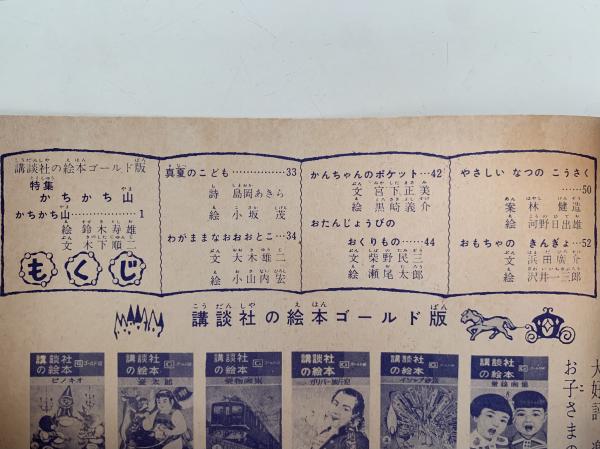 講談社の絵本ゴールド版
特集
かちかち山
かちかち山…………1
絵 鈴木寿雄
文 木下順二
もくじ
真夏のこども…………33
詩 島岡あきら
絵 小坂茂
わがままなおおおとこ…34
文 大木雄二
絵 小山内宏
かんちゃんのポケット…42
文 宮下正美
絵 黒崎義介
おたんじょうびの
おくりもの……44
文 柴野民三
絵 瀬尾太郎
やさしい なつの こうさく
……50
案 林健造
絵 河野日出雄
おもちゃの きんぎょ…52
文 浜田廣介
絵 沢井一三郎
講談社の絵本ゴールド版
講談社の絵本 ゴールド版
ピノキオ
講談社の絵本 ゴールド版
講談社の絵本 ゴールド版
乗物画集
講談社の絵本 ゴールド版
ガリバー旅行記
講談社の絵本 ゴールド版
イソップ
講談社の絵本 ゴールド版
童謡画集
お子さまの